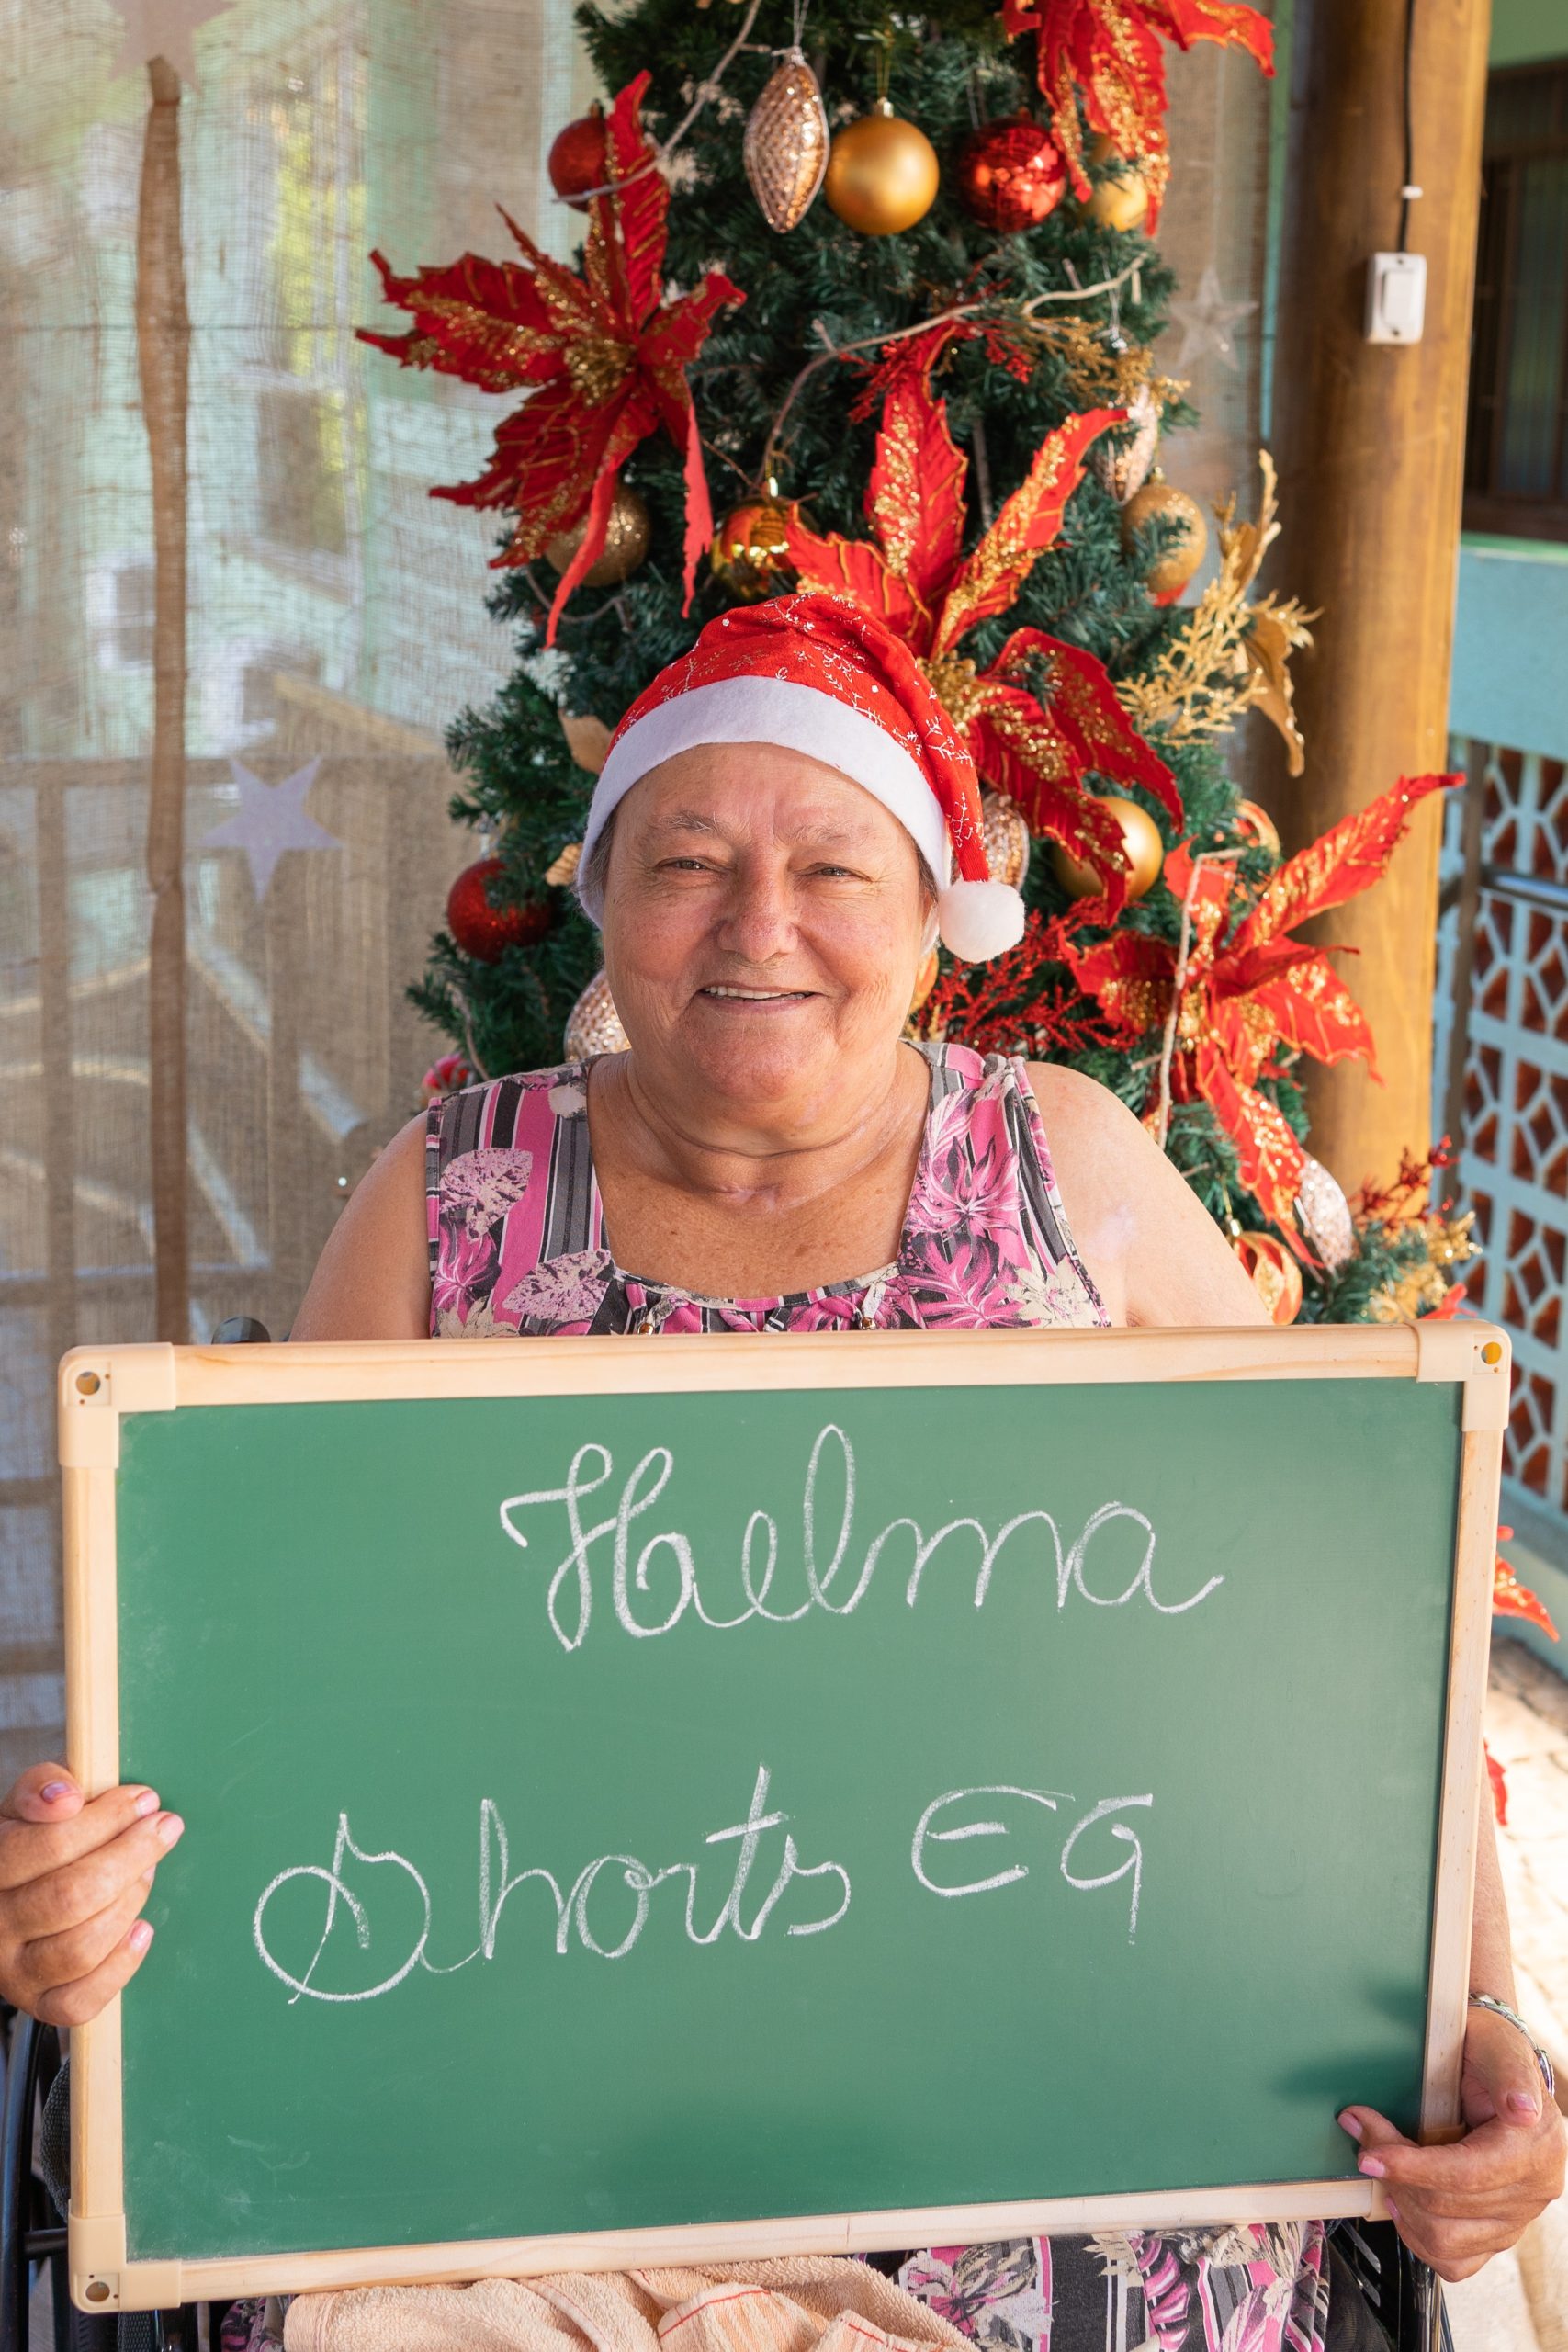 Helma
Shorts EG